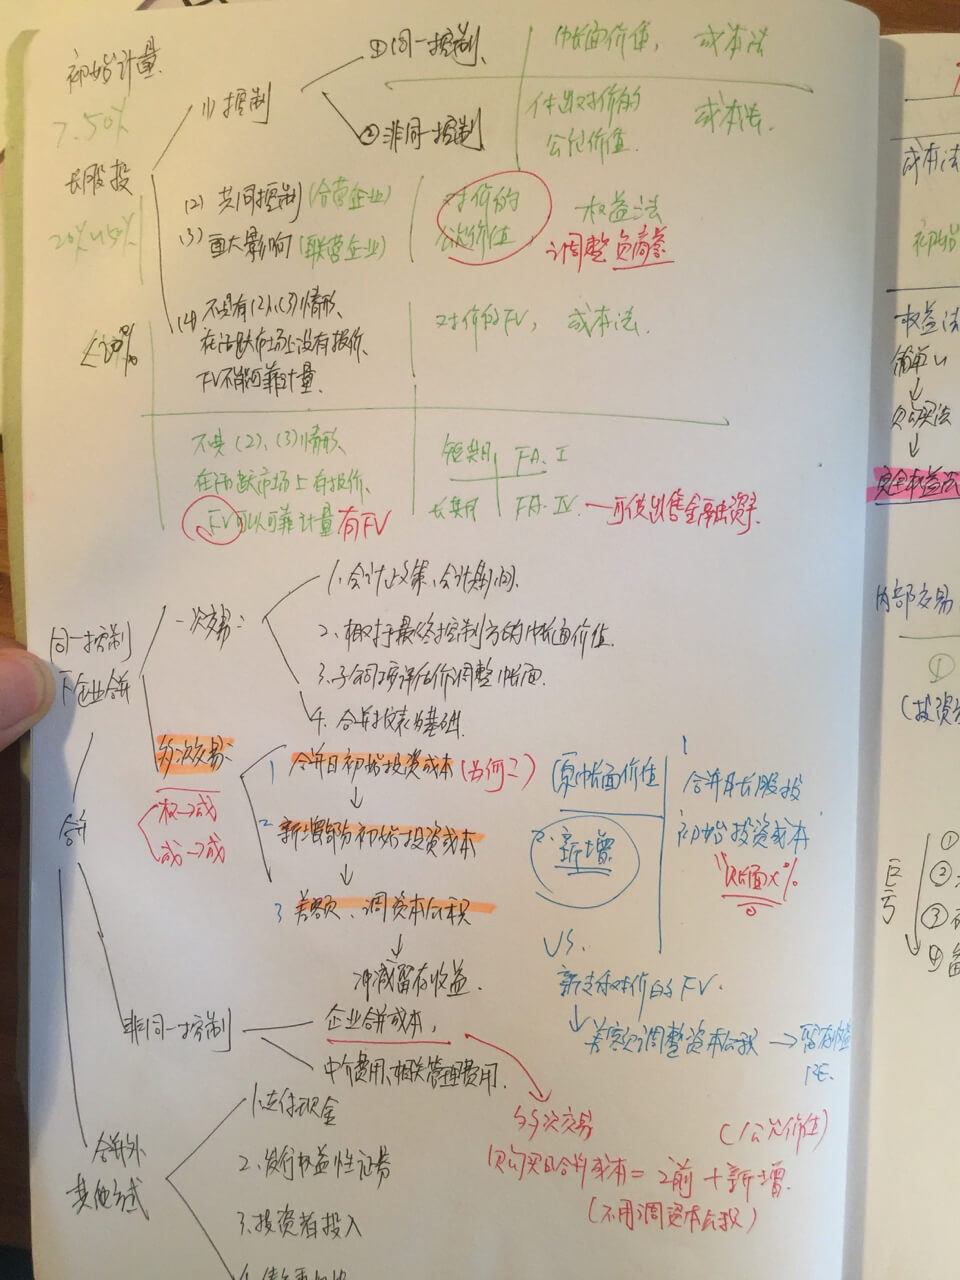 初始计量
7.50%
长股投
20%~50%
<20%
(1)控制
①同一控制
账面价值, 成本法
②非同一控制
付出对价的
公允价值. 成本法.
(2) 共同控制(合营企业)
(3) 重大影响(联营企业)
对价的
公允价值
权益法
调整负商誉
(4) 不具有(2)、(3)情形、
在活跃市场上没有报价、
FV不能可靠计量.
对价的FV, 成本法.
不具(2)、(3)情形、
在活跃市场上有报价、
FV可以可靠计量 有FV
短期 FA.I
长期 FA.IV. 可供出售金融资产
同一控制
下企业合并
一次交易:
1.会计政策、会计期间.
2.相对于最终控制方的账面价值.
3.子公司按评估价调整账面.
4.合并报表为基础.
多次交易:
权→成
成→成
1 合并日初始投资成本(为何?)
2 新增部分初始投资成本
3 差额、调资本公积
冲减留存收益.
原账面价值
2. 新增.
1
合并日长股投
初始投资成本
账面×%
VS.
新支付对价的FV.
差额调整资本公积 → 留存收益
RE.
合并
非同一控制
企业合并成本,
中介费用、相关管理费用.
多次交易
(公允价值)
购买日合并成本=之前+新增.
(不用调资本公积)
合并外
其他方式
1.支付现金
2.发行权益性证券
3.投资者投入
成本法
初始
权益法
简单
购买法
完全权益法
内部交易
①
(投资
①
②
③
④